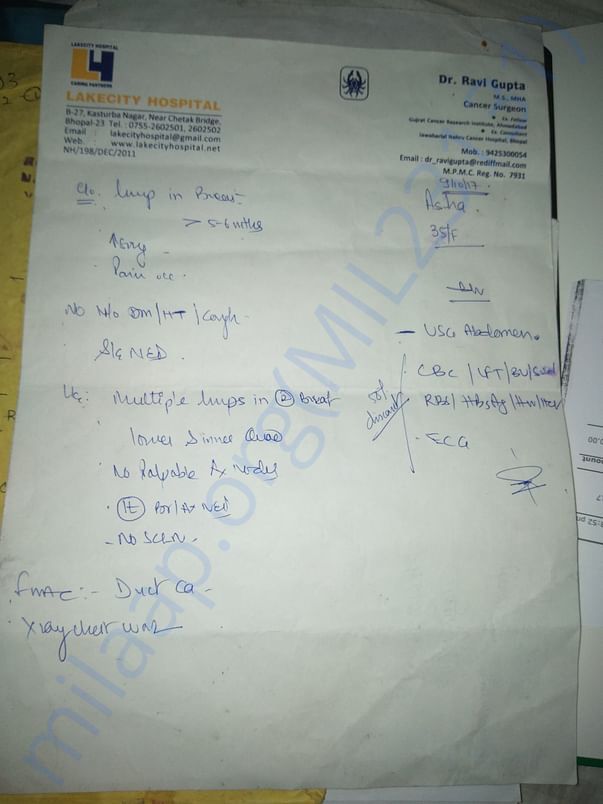 LAKECITY HOSPITAL
LH
CARING PARTNERS
LAKECITY HOSPITAL
B-27, Kasturba Nagar, Near Chetak Bridge,
Bhopal-23 Tel. : 0755-2602501, 2602502
Email : lakecityhospital@gmail.com
Web. www.lakecityhospital.net
NH/198/DEC/2011
Dr. Ravi Gupta
M.S., MHA
Cancer Surgeon
Ex. Fellow
Gujrat Cancer Research Institute, Ahmedabad
Ex. Consultant
Jawaharlal Nehru Cancer Hospital, Bhopal
Mob. : 9425300054
Email : dr_ravigupta@rediffmail.com
M.P.M.C. Reg. No. 7931
9/10/17
Asha
35/F
C/o. lump in Breast
> 5-6 mths
Pain occ.
No H/o DM/HT/Cough
S/E NED.
Multiple lumps in (R) Breast
lower & inner Quad
No Palpable Ax nodes
(Lt) Br/Ax NED
- No SCLN -
FNAC :- Duct Ca -
Xray chest WNL
- USG Abdomen.
CBC / LFT / BU /
RBS / HBsAg / HIV / HCV
- ECG
50%
discount
milaap.org(MIL22